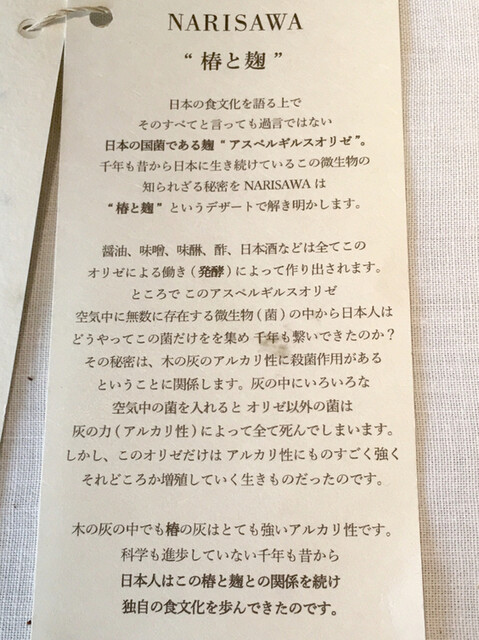 NARISAWA
“ 椿と麹 ”
日本の食文化を語る上で
そのすべてと言っても過言ではない
日本の国菌である麹 “ アスペルギルスオリゼ ”。
千年も昔から日本に生き続けているこの微生物の
知られざる秘密を NARISAWA は
“ 椿と麹 ” というデザートで解き明かします。
醤油、味噌、味醂、酢、日本酒などは全てこの
オリゼによる働き ( 発酵 ) によって作り出されます。
ところで このアスペルギルスオリゼ
空気中に無数に存在する微生物 ( 菌 ) の中から日本人は
どうやってこの菌だけをを集め 千年も繋いできたのか？
その秘密は、木の灰のアルカリ性に殺菌作用がある
ということに関係します。灰の中にいろいろな
空気中の菌を入れると オリゼ以外の菌は
灰の力 ( アルカリ性 ) によって全て死んでしまいます。
しかし、このオリゼだけは アルカリ性にものすごく強く
それどころか増殖していく生きものだったのです。
木の灰の中でも椿の灰はとても強いアルカリ性です。
科学も進歩していない千年も昔から
日本人はこの椿と麹との関係を続け
独自の食文化を歩んできたのです。